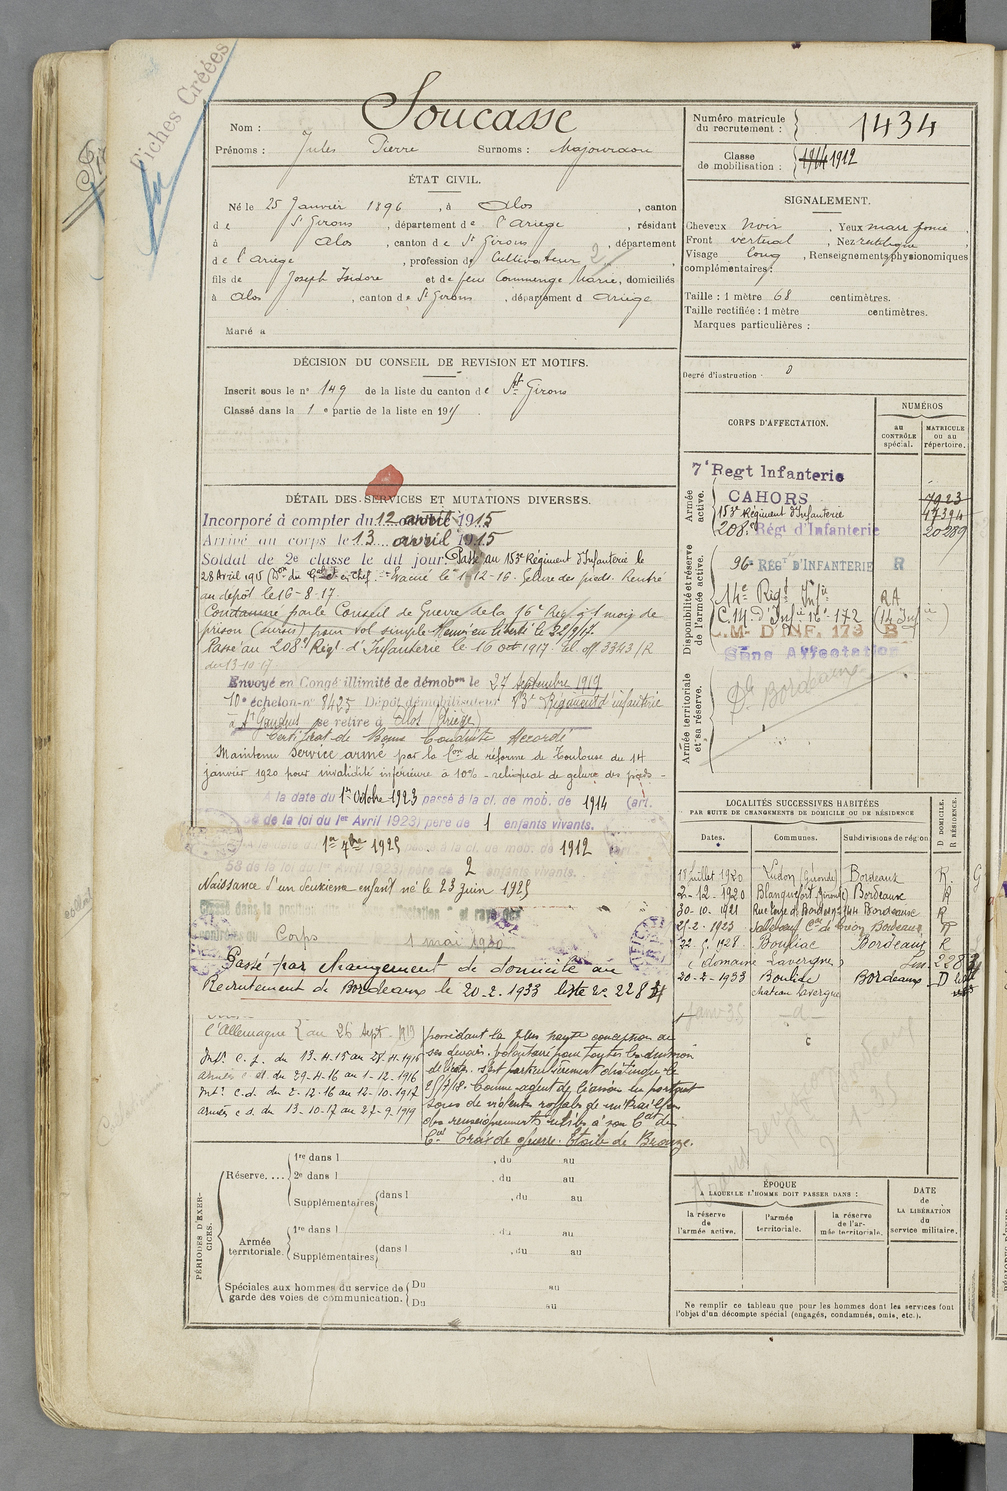 Fiches Créées
Nom : Soucasse
Prénoms : Jules Pierre Surnoms : Majourdau
Numéro matricule du recrutement : 1434
Classe de mobilisation : 1914 1912
ÉTAT CIVIL.
Né le 25 Janvier 1896, à Alos, canton
de St Girons, département de l'Ariège, résidant
à Alos, canton de St Girons, département
de l'Ariège, profession de Cultivateur 2
fils de Joseph Isidore et de feue Commenge Marie, domiciliés
à Alos, canton de St Girons, département d Ariège
Marié à
SIGNALEMENT.
Cheveux Noir, Yeux marr foncé,
Front vertical, Nez rectiligne
Visage long, Renseignements physionomiques
complémentaires :
Taille : 1 mètre 68 centimètres.
Taille rectifiée : 1 mètre centimètres.
Marques particulières :
Degré d'instruction : 0
DÉCISION DU CONSEIL DE REVISION ET MOTIFS.
Inscrit sous le n° 149 de la liste du canton de St Girons
Classé dans la 1e partie de la liste en 191
DÉTAIL DES SERVICES ET MUTATIONS DIVERSES.
Incorporé à compter du 12 avril 1915
Arrivé au corps le 13 avril 1915
Soldat de 2e classe le dit jour. Passé au 153e Régiment d'Infanterie le
28 Avril 1915 (Don du Gal en Chef. Evacué le 1-12-16. Gelure des pieds. Rentré
au dépôt le 16-8-17.
Condamné par le Conseil de Guerre de la 16e Reg. à 1 mois de
prison (sursis) pour vol simple. Remis en liberté le 22/9/17.
Passé au 208e Régt d'Infanterie le 16 oct 1917. 3343/R
du 13-10-17
Envoyé en Congé illimité de démobon le 27 Septembre 1919
10e échelon n° 8425 Dépôt démobilisateur 83e Régiment d'infanterie
à St Gaudens se retire à Alos (Ariège)
Certificat de Bonne Conduite Accordé
Maintenu service armé par la Con de réforme de Toulouse du 14
janvier 1920 pour invalidité inférieure à 10% - reliquat de gelure des pieds -
A la date du 1er Octobre 1923 passé à la cl. de mob. de 1914 (art.
58 de la loi du 1er Avril 1923) père de 1 enfants vivants.
1er 7bre 1925 passé à la cl. de mob. de 1912
58 de la loi du 1er Avril 1923, père de 2 enfants vivants.
Naissance d'un deuxième enfant né le 23 juin 1925
Classé dans la position " affectation " et rayé des
contrôles du Corps 1 mai 1930
Passé par changement de domicile au
Recrutement de Bordeaux le 20-2-1933 liste no 228
l'Allemagne { au 26 Sept. 1919
Intr c. d. du 13-4-15 au 28-4-1916
armées c d. du 29-4-16 au 1-12-1916
Intr c.d. du 2-12-16 au 12-10-1917
armées c d. du 13-10-17 au 27-9-1919
possédant la plus haute conception de
ses devoirs. volontaire pour toutes les missions
S'est particulièrement distingué le
Comme agent de liaison en portant
sous de violentes rafales de mitrailleuses
des renseignements utiles à son Ct de
Cie Croix de Guerre. Etoile de Bronze.
CORPS D'AFFECTATION.
NUMÉROS
au CONTRÔLE spécial.
MATRICULE ou au répertoire.
Armée active.
7e Regt Infanterie
CAHORS 7923
153e Régiment d'Infanterie 47394
208e Régt d'Infanterie 20289
Disponibilité et réserve de l'armée active.
96e RÉGt D'INFANTERIE R
14e Régt Infie RA
C.M. d'Infie 16e 172 (14 Infie)
C.M. D'INF. 173 B
Sans Affectation
Armée territoriale et sa réserve.
Dt Bordeaux
LOCALITÉS SUCCESSIVES HABITÉES
PAR SUITE DE CHANGEMENTS DE DOMICILE OU DE RÉSIDENCE
D DOMICILE.
R RÉSIDENCE.
Dates. Communes. Subdivisions de région
18 juillet 1920 Ludon (Gironde) Bordeaux R.
2-12-1920 Blanquefort Gironde) Bordeaux R
30-10-1921 Bordeaux R
21-2-1923 Salleboeuf Con de Créon Bordeaux R
22 5-1928 Bouliac Bordeaux R
(domaine Lavergne)
20-2-1933 Bouliac Bordeaux D
chateau Lavergne
Janv 35 -d-
PÉRIODES D'EXERCICES.
Réserve.... 1re dans l , du au
2e dans l , du au
Supplémentaires dans l , du au
Armée territoriale. 1re dans l , du au
Supplémentaires dans l , du au
Spéciales aux hommes du service de garde des voies de communication. Du au
Du au
ÉPOQUE
A LAQUELLE L'HOMME DOIT PASSER DANS :
la réserve de l'armée active.
l'armée territoriale.
la réserve de l'armée territoriale.
DATE de LA LIBÉRATION du service militaire.
Ne remplir ce tableau que pour les hommes dont les services font
l'objet d'un décompte spécial (engagés, condamnés, omis, etc.).